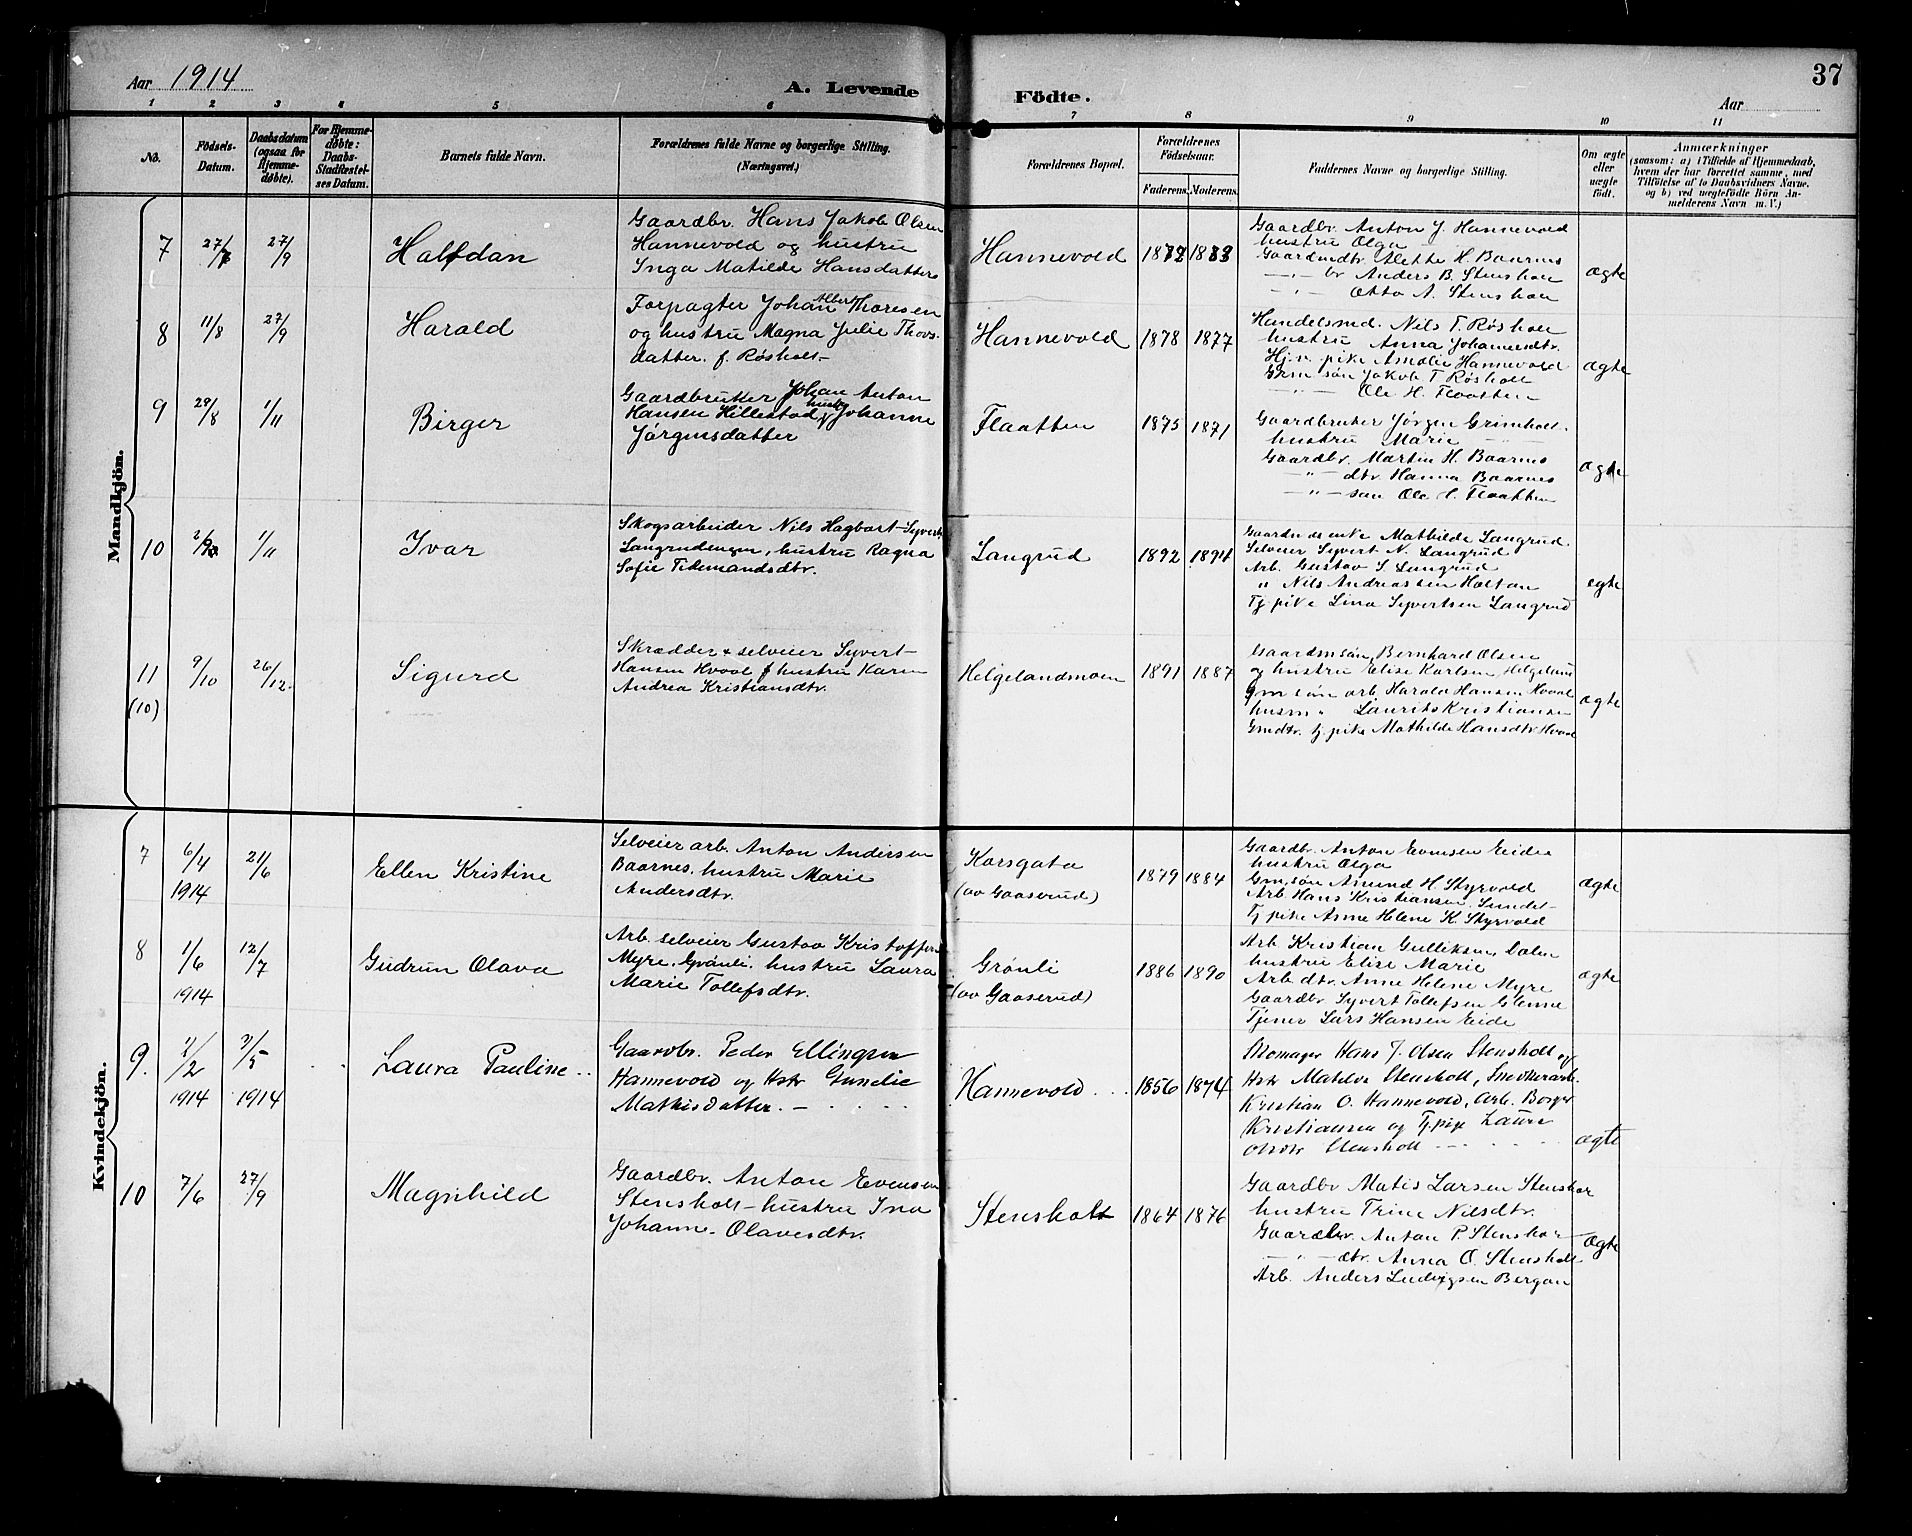 Aar 1914
A. Levende
Födte.
37
Aar
1 2 3 4 5 6 7 8 9 10 11
No.
Födsels-
Datum.
Daabsdatum
(ogsaa for
Hjemme-
døbte).
For Hjemme-
døbte:
Daabs-
Stadfæstel-
ses Datum.
Barnets fulde Navn.
Forældrenes fulde Navne og borgerlige Stilling.
(Næringsvei.)
Forældrenes Bopæl.
Forældrenes
Födselsaar.
Faderens. Moderens.
Faddernes Navne og borgerlige Stilling.
Om ægte
eller
uægte
födt.
Anmærkninger
(saasom: a) i Tilfælde af Hjemmedaab,
hvem der har forrettet samme, med
Tilföielse af to Daabsvidners Navne,
og b) ved uægtefödte Börn An-
melderens Navn m. V.)
Mandkjön.
7 27/7 27/9 Halfdan
Gaardbr. Hans Jakob Olsen
Hannevold og hustru
Inga Matilde Hansdatter
Hannevold
Gaardbr. Anton J. Hannevold
hustru Olga
Gaardmdtr. Alette H. Baarnes
— " — br Anders B. Stensholt
— " — Otto A. Stensholt
ægte
8 11/8 27/9 Harald
Forpagter Johan Albert Thoresen
og hustru Magna Julie Thors-
datter. f. Røsholt-
Hannevold 1878 1877
Handelsmd. Nils T. Røsholt
hustru Anna Johannesdtr.
Hj.v. pike Amalie Hannevold
Grm søn Jakob T Røsholt
— " — Ole H. Flaatten
ægte
9 29/8 1/11 Birger
Gaardbruker Johan Anton
Hansen Hillestad, hustru Johanne
Jørgensdatter
Flaatten 1875 1871
Gaardbruker Jørgen Grimholt.
hustru Marie — " —
Gaardbr. Martin H. Baarnes
— " — dtr. Hanna Baarnes
— " — søn Ole H. Flaatten
ægte
10 1/11 Ivar
Skogsarbeider Nils Hagbart Syverts.
Langrudengen, hustru Ragna
Sofie Tidemandsdtr.
Langrud 1892 1894
Gaardm. enke Mathilde Langrud.
Selveier Syvert N. Langrud
Arb. Gustav S Langrud
" Nils Andreassen Holtan
Tj. pike Lina Syvertsen Langrud
egte
11 9/10 26/12. Sigurd
(10)
Skrædder & selveier Syvert
Hansen Hvaal & hustru Karen
Andrea Kristiansdtr.
Helgelandmoen 1891 1887
Gaardmsøn Bernhard Olsen
og hustru Elise Karlsen Helgeland
gm søn arb. Harald Hansen Hvaal
husm " Laurits Kristiansen
Gmdtr. tj. pike Mathilde Hansdtr Hvaal
ægte
Kvindekjön.
7 6/4 21/6 Ellen Kristine
1914
Selveier arb. Anton Andersen
Baarnes, hustru Marie
Andersdtr.
Korsgata
(av Gaaserud)
1879 1884
Gaardbr. Anton Evensen Eidee
hustru Olga
Gm.søn Amund H. Styrvold
Arb. Hans Kristiansen Sundet-
Tj. pike Anne Helene K. Styrvold
ægte
8 1/6 12/7 Gudrun Olava
1914
Arb. selveier Gustav Kristoffers.
Myre, Grønli, hustru Laura
Marie Tollefsdtr.
Grønli
(av Gaaserud)
1886 1890
Arb Kristian Gulliksen, Dalen
hustru Elise Marie
Arb. dtr. Anne Helene Myre
Gaardbr. Syvert Tollefsen Glenne
Tjener Lars Hansen Eide
ægte
9. 1/2 3/5 Laura Pauline
1914 1914
Gaardbr. Peder Ellingsen
Hannevold og Hstr Gunelie
Mathisdatter.
Hannevold 1856 1874
Skomager Hans J. Olsen Stensholt og
Hstr Matilde Stensholt, Snedkerarb.
Kristian O. Hannevold, Arb. Borger
Kristiansen og Tj. pige Laura
Olsdtr Stensholt
ægte
10 7/6 27/9 Magnhild
Gaardbr. Anton Evensen
Stensholt — hustru Ina
Johann. Olavesdtr.
Stensholt 1864 1876
Gaardbr Matis Larsen Stensholt
hustru Trine Nilsdtr.
Gaardbr. Anton P. Stensholt
— " — dtr. Anna O. Stensholt
Arb. Anders Ludvigsen Bergan
ægte